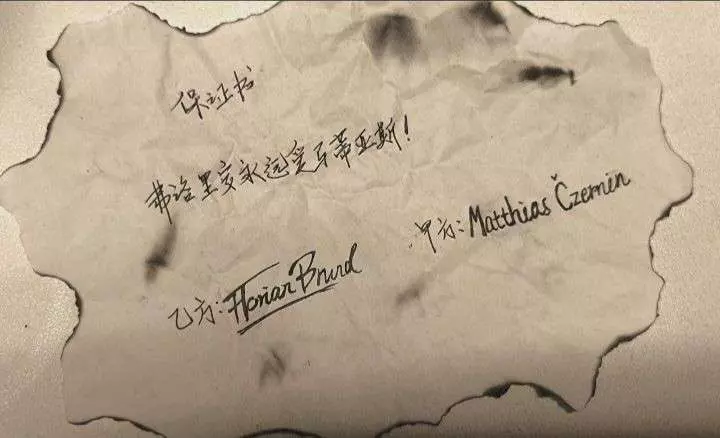 保证书
弗洛里安永远爱马蒂亚斯!
甲方: Matthias Czernin
乙方: Florian Brurd